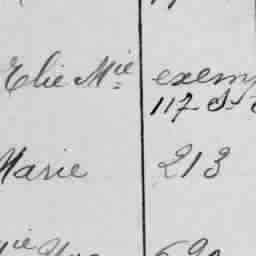 Elie Mie exem
117 St
Marie 213